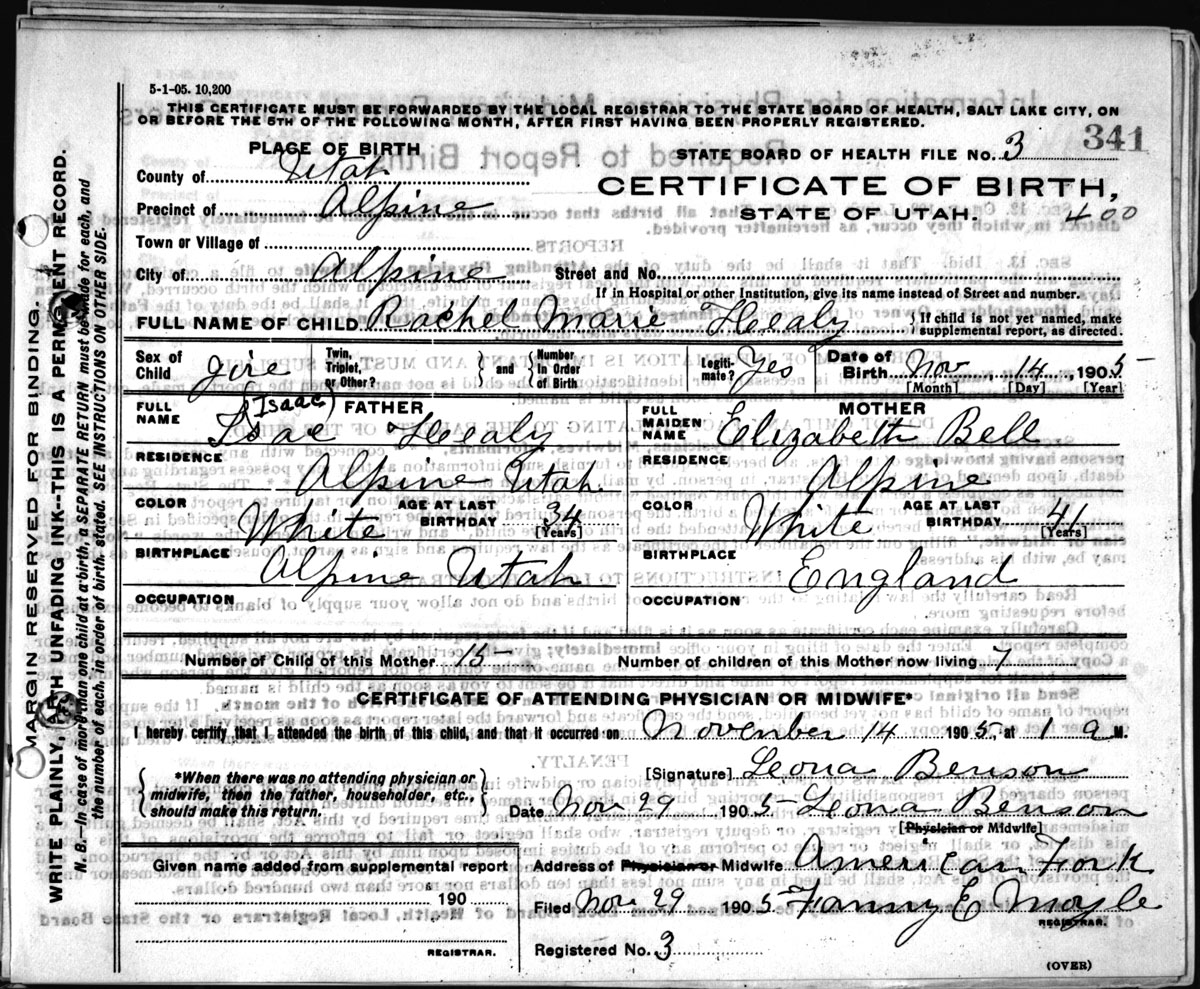 5-1-05. 10,200
THIS CERTIFICATE MUST BE FORWARDED BY THE LOCAL REGISTRAR TO THE STATE BOARD OF HEALTH, SALT LAKE CITY, ON
OR BEFORE THE 5TH OF THE FOLLOWING MONTH, AFTER FIRST HAVING BEEN PROPERLY REGISTERED.
341
PLACE OF BIRTH
STATE BOARD OF HEALTH FILE No. 3
County of Utah
CERTIFICATE OF BIRTH,
Precinct of Alpine
STATE OF UTAH. 400
Town or Village of
City of Alpine Street and No.
If in Hospital or other Institution, give its name instead of Street and number.
FULL NAME OF CHILD. Rachel Marie Healy } If child is not yet named, make supplemental report, as directed.
Sex of Child girl Twin, Triplet, or Other? } and { Number in Order of Birth Legiti-mate? Yes Date of Birth Nov, 14, 1905
[Month] [Day] [Year]
FATHER
FULL NAME Isac (Isaac) Healy
RESIDENCE
Alpine Utah
COLOR White AGE AT LAST BIRTHDAY 34 [Years]
BIRTHPLACE
Alpine Utah
OCCUPATION
MOTHER
FULL MAIDEN NAME Elizabeth Bell
RESIDENCE
Alpine
COLOR White AGE AT LAST BIRTHDAY 41 [Years]
BIRTHPLACE
England
OCCUPATION
Number of Child of this Mother 15 Number of children of this Mother now living 7
CERTIFICATE OF ATTENDING PHYSICIAN OR MIDWIFE*
I hereby certify that I attended the birth of this child, and that it occurred on November 14 1905, at 1 a M.
{ *When there was no attending physician or midwife, then the father, householder, etc., should make this return. }
[Signature] Leona Benson
Date Nov 29 1905 Leona Benson
[Physician or Midwife]
Given name added from supplemental report
190
REGISTRAR.
Address of Physician or Midwife American Fork
Filed Nov 29 1905 Fanny E Moyle
REGISTRAR.
Registered No. 3
(OVER)
MARGIN RESERVED FOR BINDING.
WRITE PLAINLY, WITH UNFADING INK--THIS IS A PERMANENT RECORD.
N. B.—In case of more than one child at a birth, a SEPARATE RETURN must be made for each, and
the number of each, in order of birth, stated. SEE INSTRUCTIONS ON OTHER SIDE.